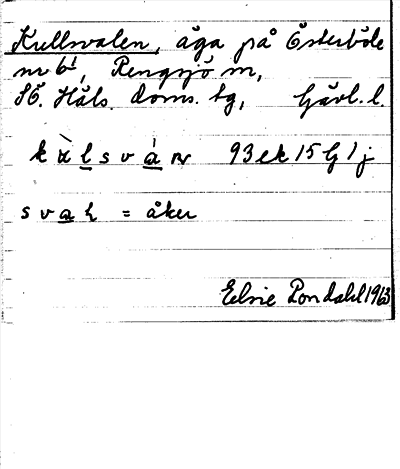 Kullsvalen, äga på Österböle
nr 6¹, Rengsjö sn,
SÖ. Häls. doms. tg, Gävl. l.
93 ek 15 G 1 j
= åker
Elsie Pondahl 1963